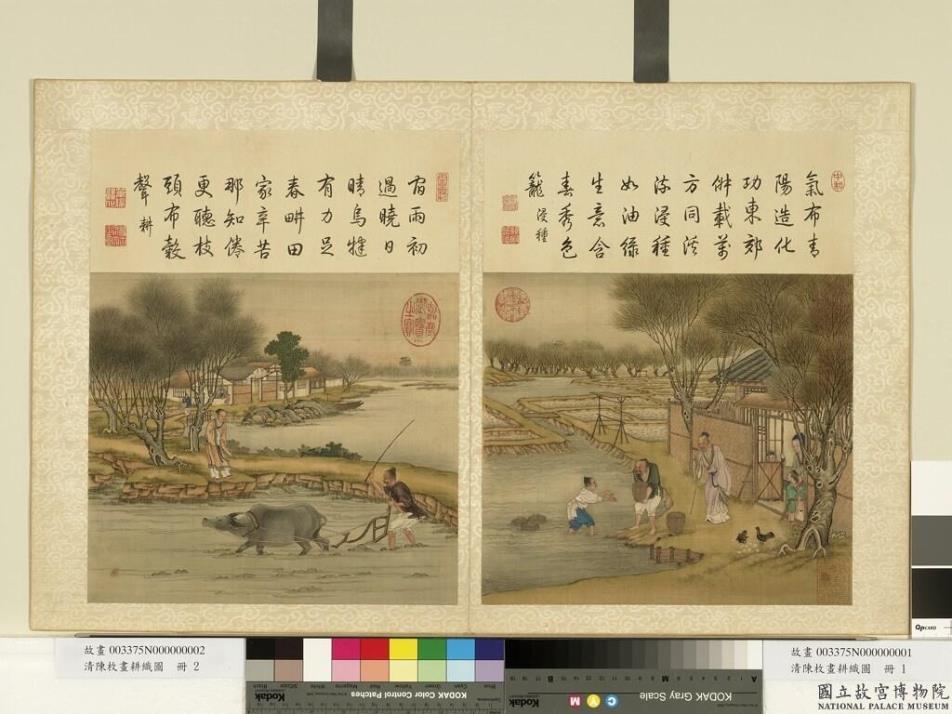 氣布青
陽造化
功東郊
俶載萬
方同溪
流浸種
如油綠
生意含
春秀色
籠 浸種
宿雨初
過曉日
晴烏犍
有力足
春畊田
家辛苦
那知倦
更聽枝
頭布穀
聲 耕
故畫 003375N000000002
清陳枚畫耕織圖 冊 2
故畫 003375N000000001
清陳枚畫耕織圖 冊 1
Kodak
KODAK Color Control Patches
Blue Cyan Green Yellow Red Magenta White 3/Color Black
Kodak
KODAK Gray Scale
C Y M
A M B
國立故宮博物院
NATIONAL PALACE MUSEUM